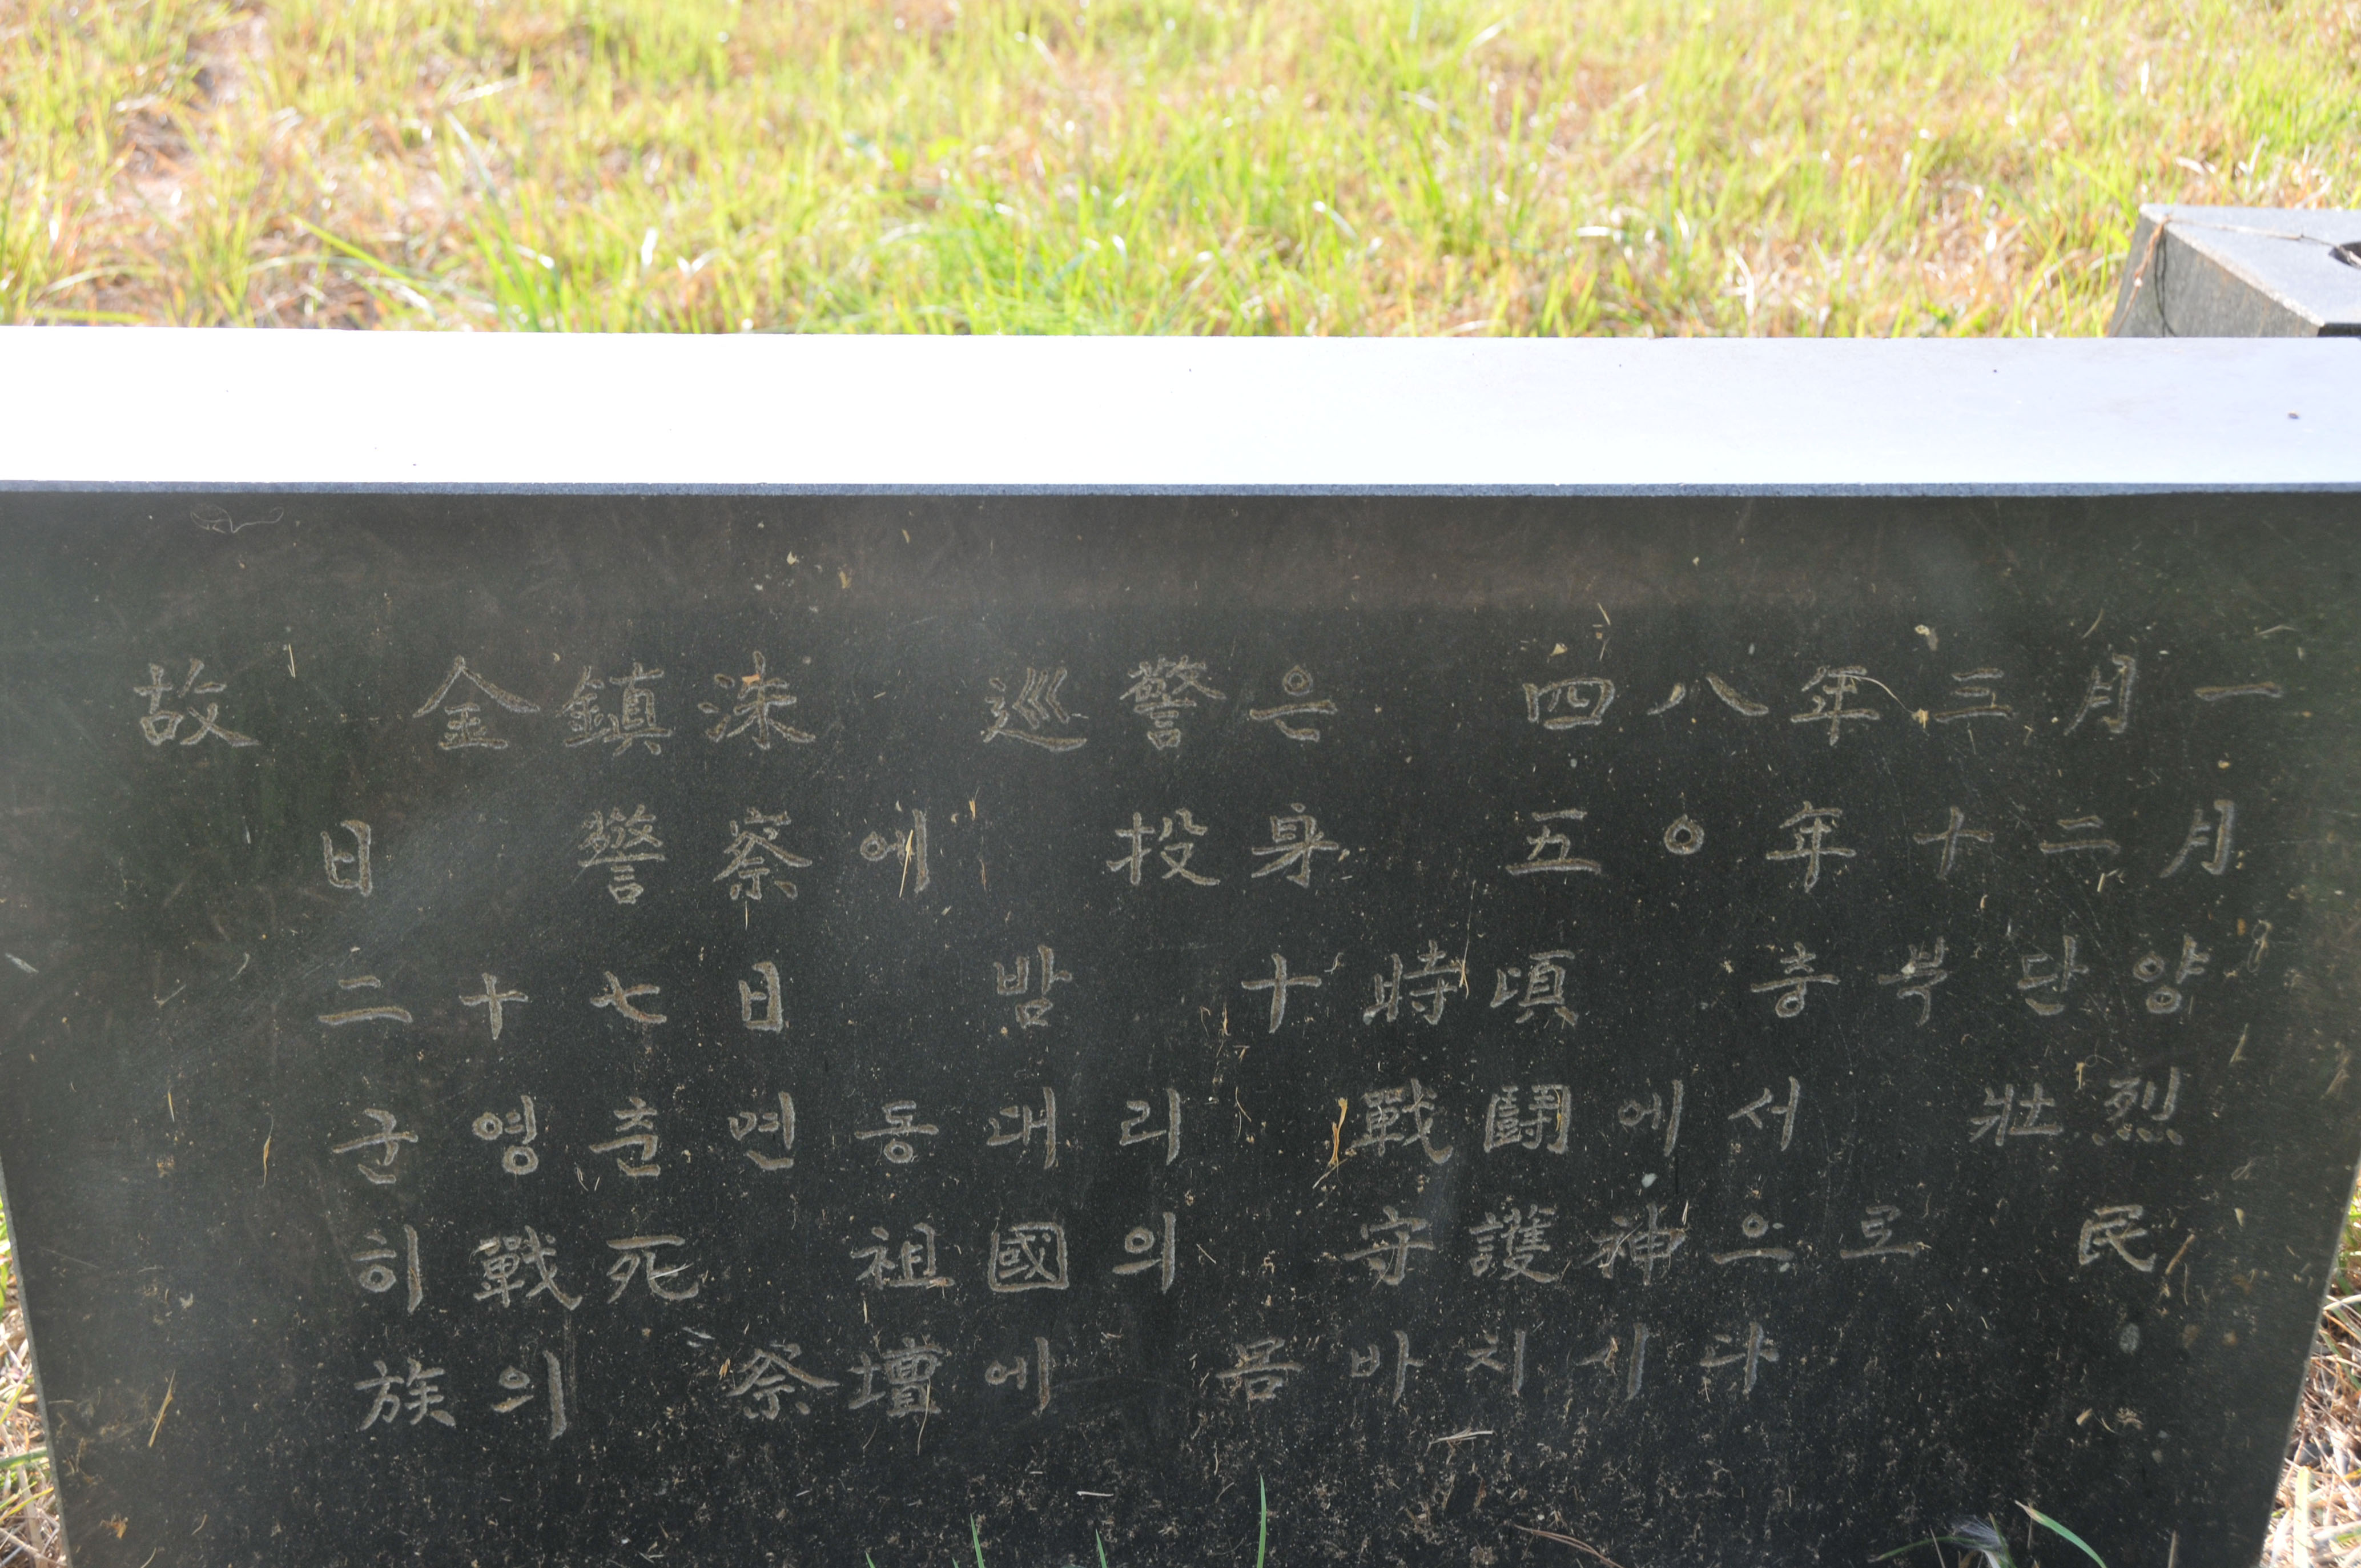 故 金鎭洙 巡警은 四八年三月一
日 警察에 投身 五○年十二月
二十七日 밤 十時頃 충북단양
군영춘면동대리 戰鬪에서 壯烈
히戰死 祖國의 守護神으로 民
族의 祭壇에 몸바치시다